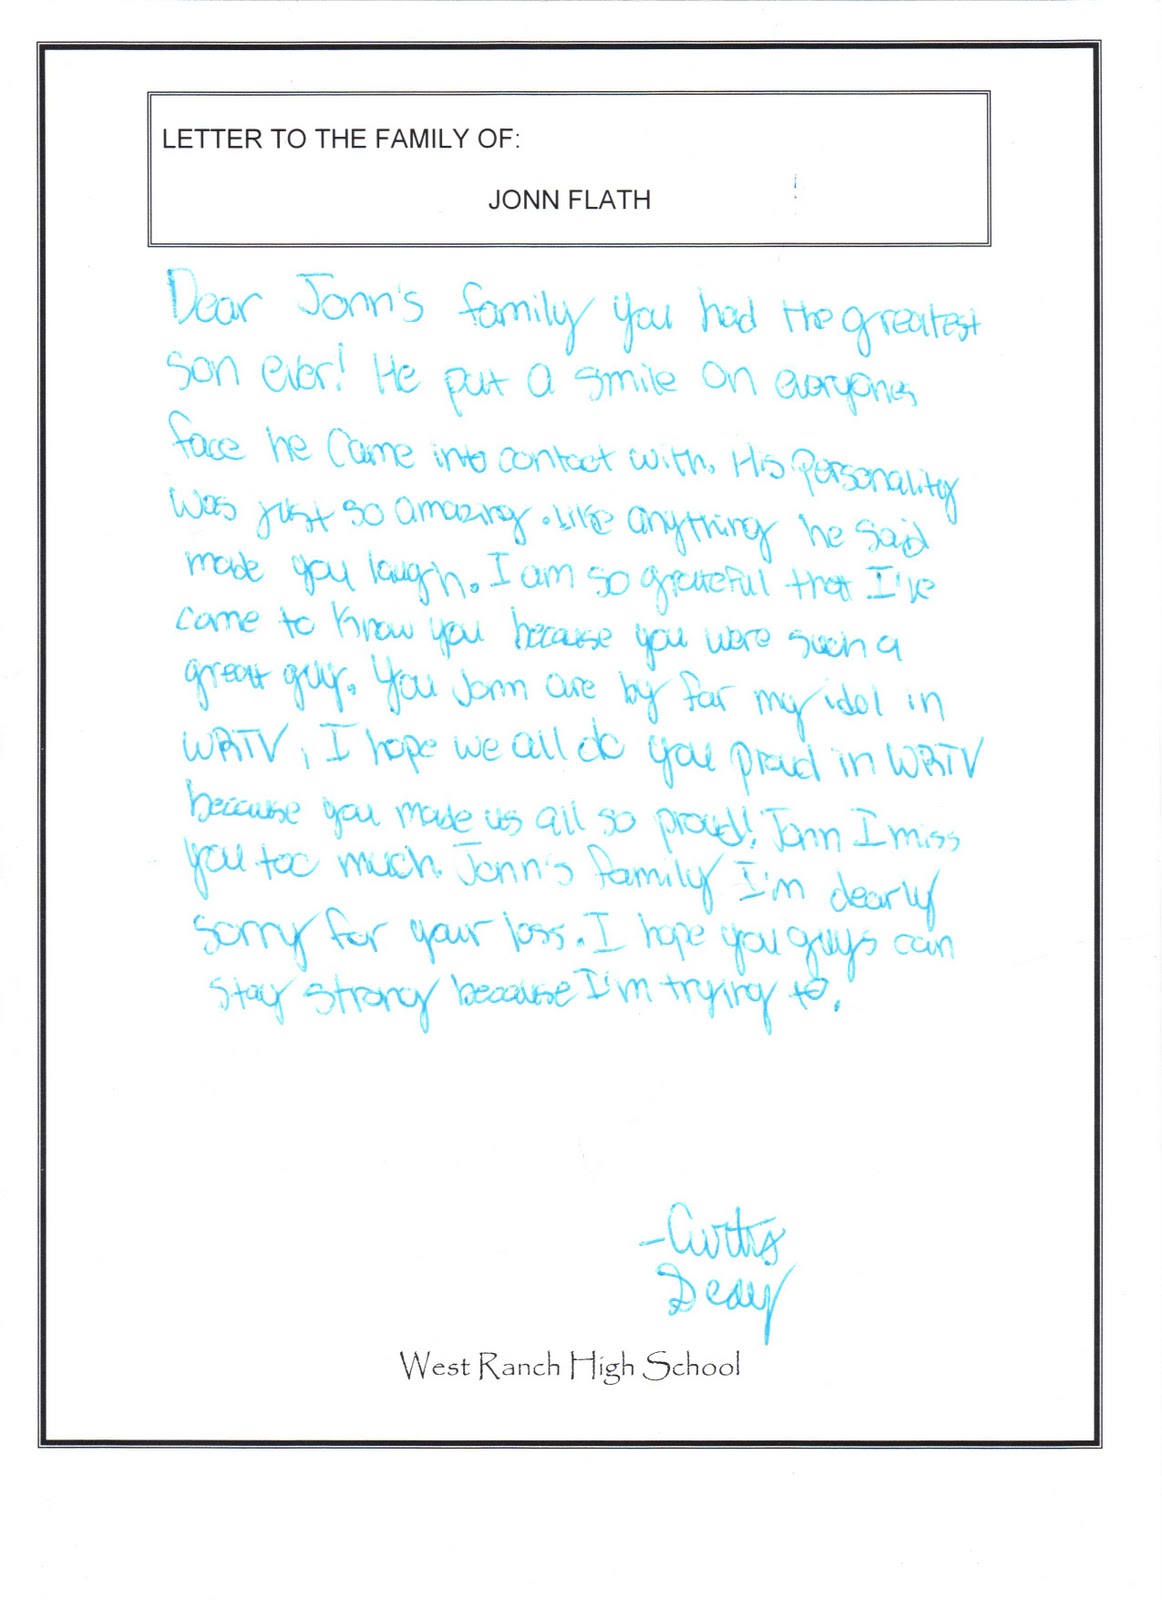 LETTER TO THE FAMILY OF:
JONN FLATH
Dear Jonn's family you had the greatest
son ever! He put a smile on everyones
face he came into contact with. His personality
was just so amazing. Like anything he said
made you laugh. I am so grateful that I've
came to know you because you were such a
great guy. You Jonn are by far my idol in
WRTV, I hope we all do you proud in WRTV
because you made us all so proud! Jonn I miss
you too much. Jonn's family I'm dearly
sorry for your loss. I hope you guys can
stay strong because I'm trying to.
-Curtis
West Ranch High School